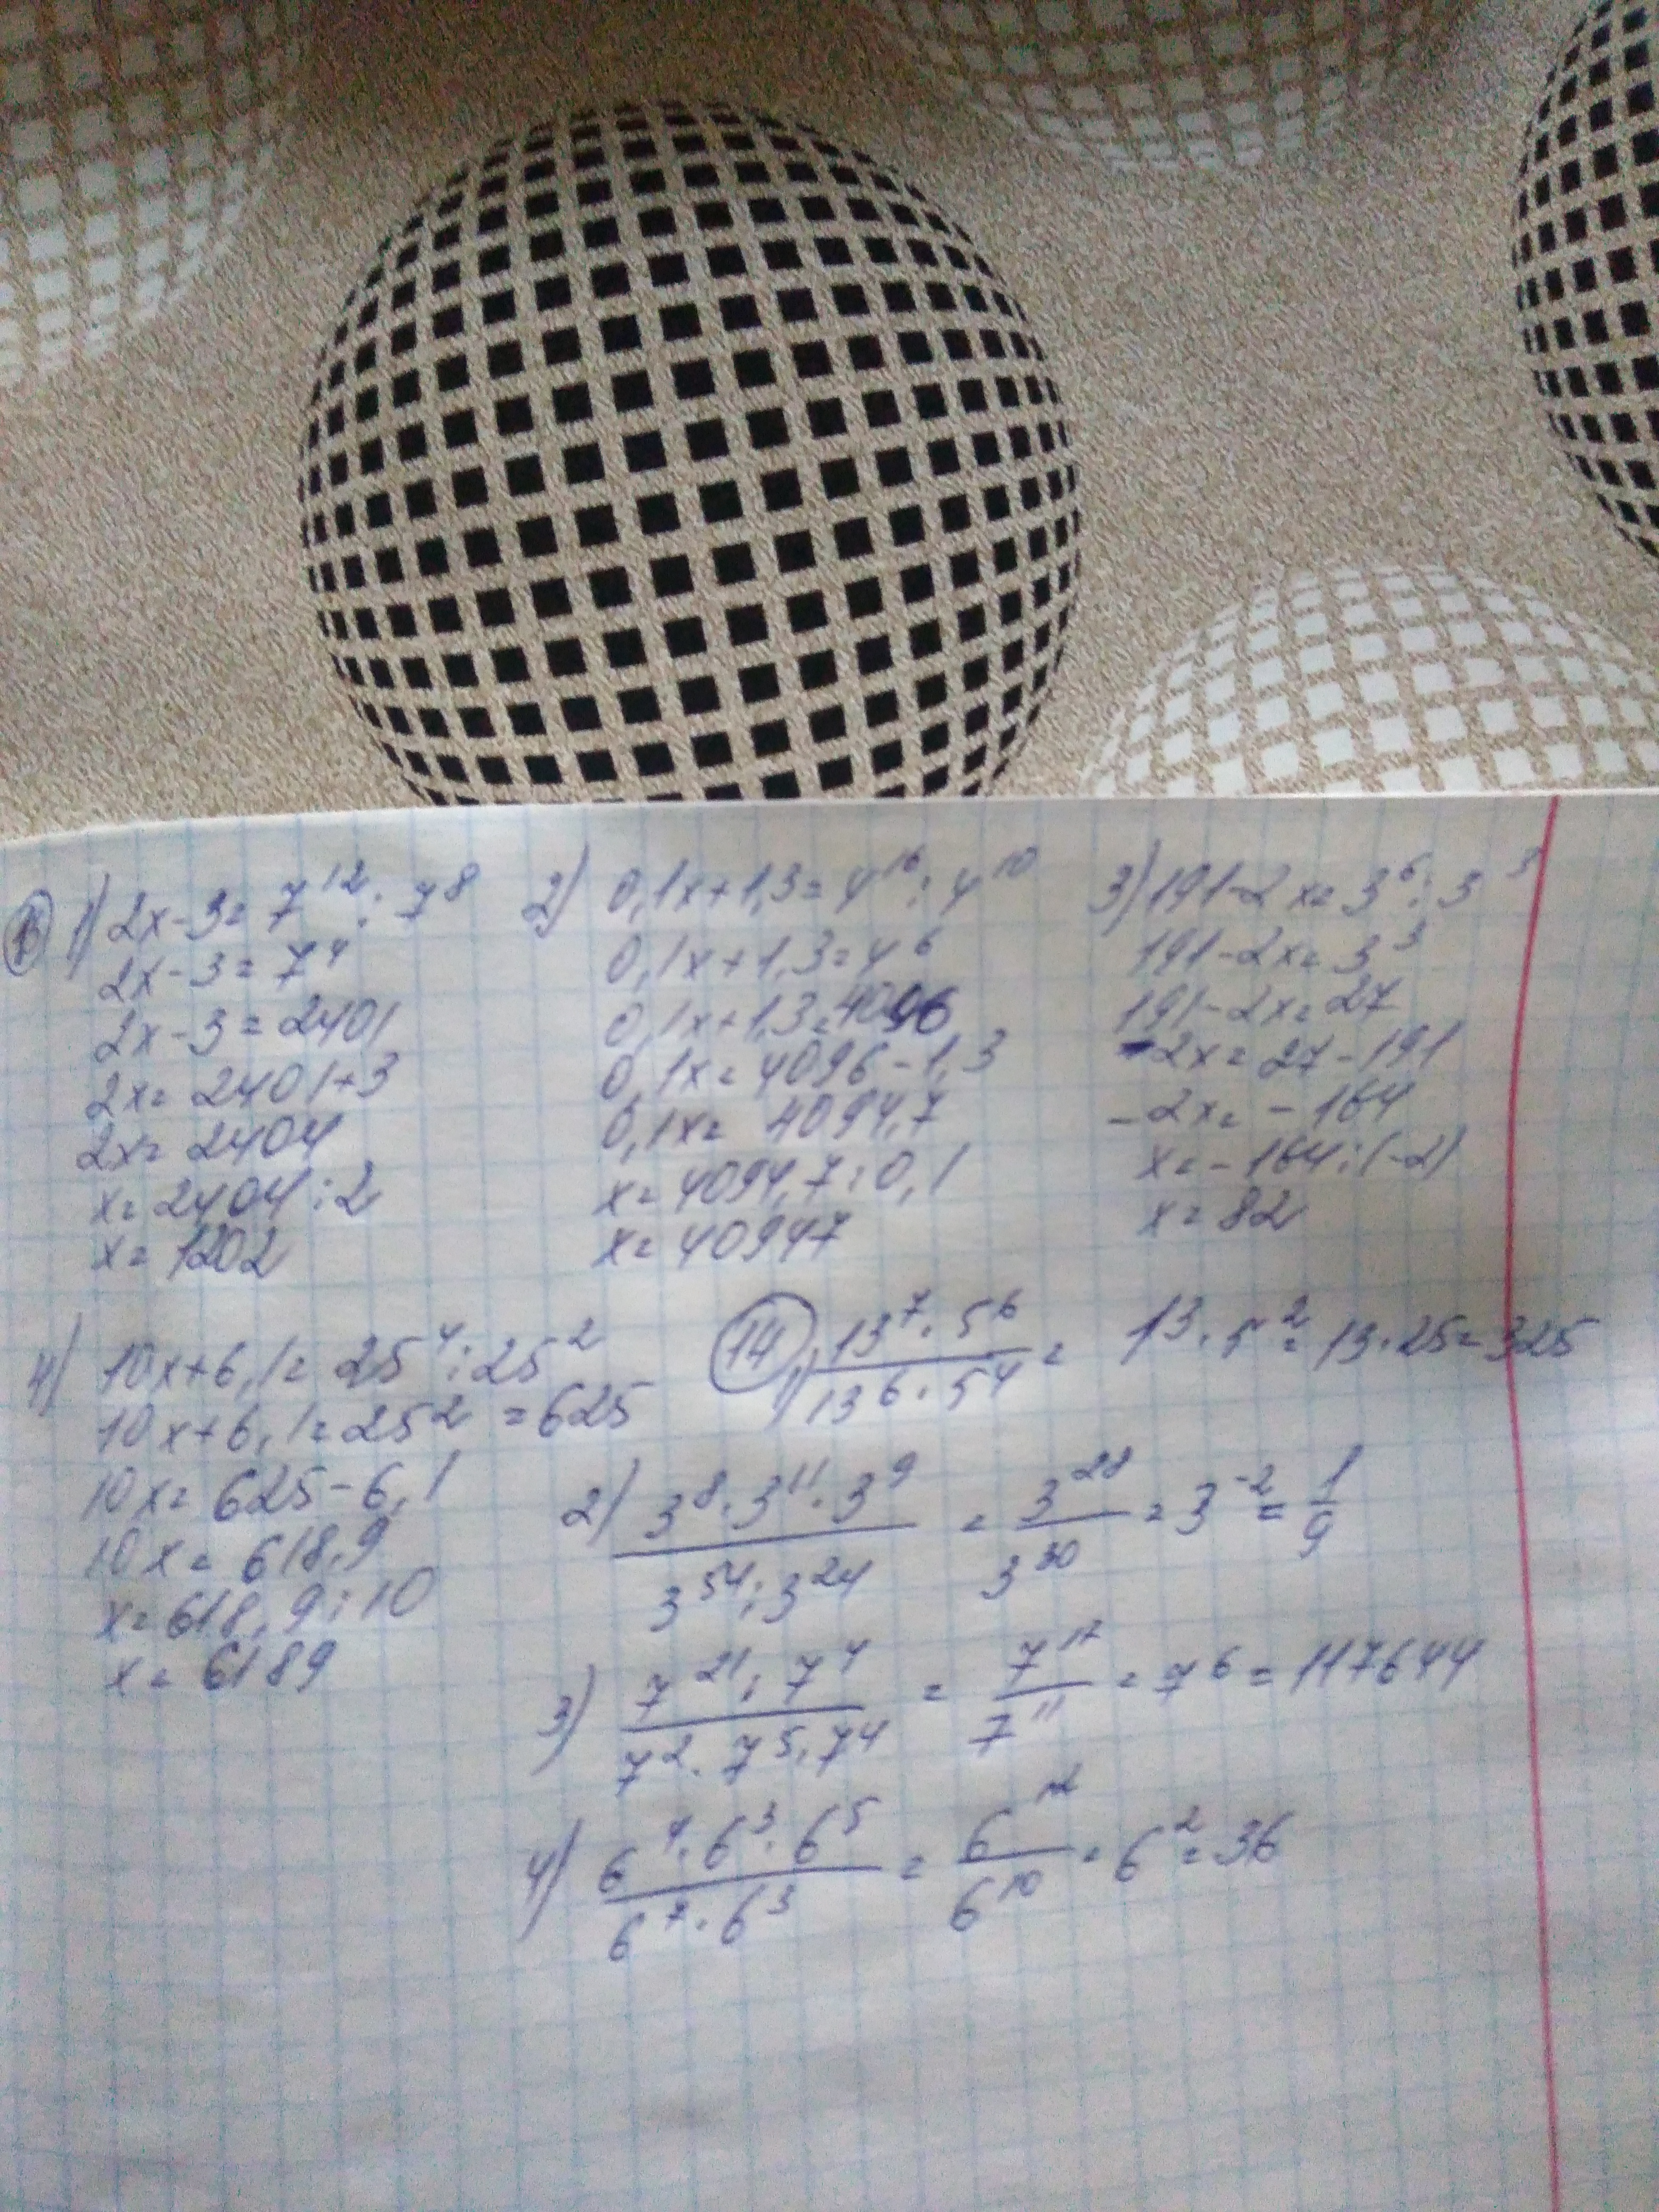 1) 2x-3=7¹²:7⁸
2x-3=7⁴
2x-3=2401
2x=2401+3
2x=2404
x=2404:2
x=1202
2) 0,1x+1,3=4¹⁶:4¹⁰
0,1x+1,3=4⁶
0,1x+1,3=4096
0,1x=4096-1,3
0,1x=4094,7
x=4094,7:0,1
x=40947
3) 191-2x=3⁶:3³
191-2x=3³
191-2x=27
-2x=27-191
-2x=-164
x=-164:(-2)
x=82
4) 10x+6,1=25⁴:25²
10x+6,1=25²=625
10x=625-6,1
10x=618,9
x=618,9:10
x=6189
14 1) (13⁷·5⁶)/(13⁶·5⁴)=13·5²=13·25=325
2) (3⁸·3¹¹·3⁹)/(3⁵⁴:3²⁴)=3²⁸/3³⁰=3⁻²=1/9
3) (7²¹:7⁴)/(7²·7⁵·7⁴)=7¹⁷/7¹¹=7⁶=117644
4) (6⁴·6³·6⁵)/(6⁷·6³)=6¹²/6¹⁰=6²=36